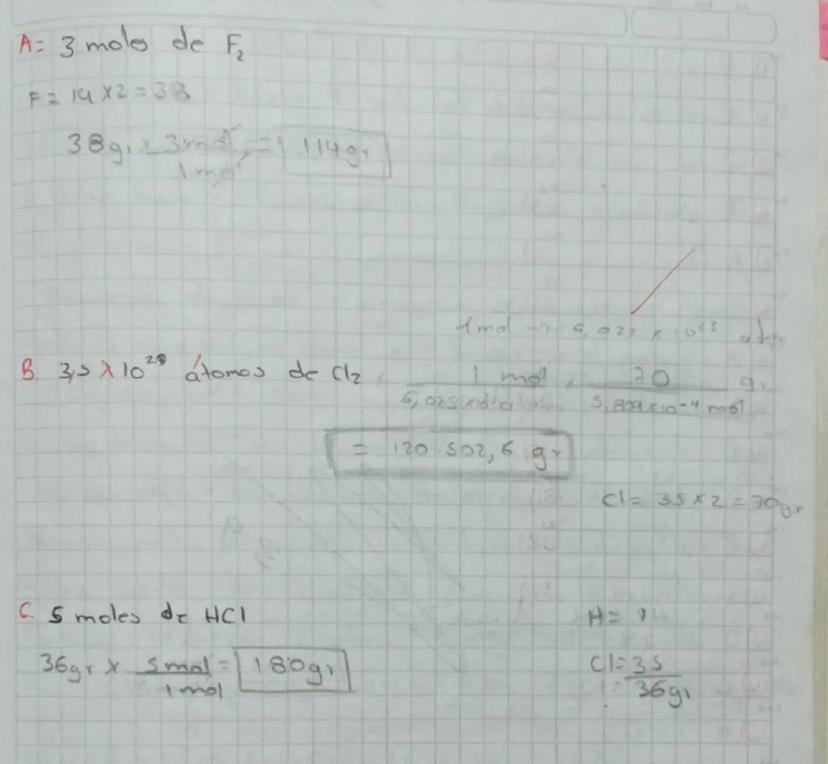 A= 3 moles de F₂
F = 19 x 2 = 38
38gr x 3mol / 1mol = 114gr
1mol → 6,025 x 10²³ 
B. 3,5 x 10²⁸ átomos de Cl₂ . 1 mol / 6,025 x 10 . 70 g. / 5,809 x 10-4 mol
= 120.502,6 gr
Cl = 35 x 2 = 70gr
C. 5 moles de HCl
H = 1
36gr x 5mol / 1mol = 180gr
Cl = 35
= 36gr